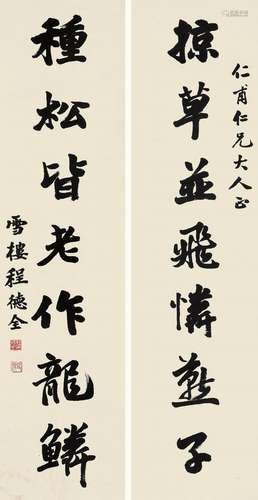 仁甫仁兄大人正
掠草並飛憐燕子
種松皆老作龍鱗
雪樓程德全